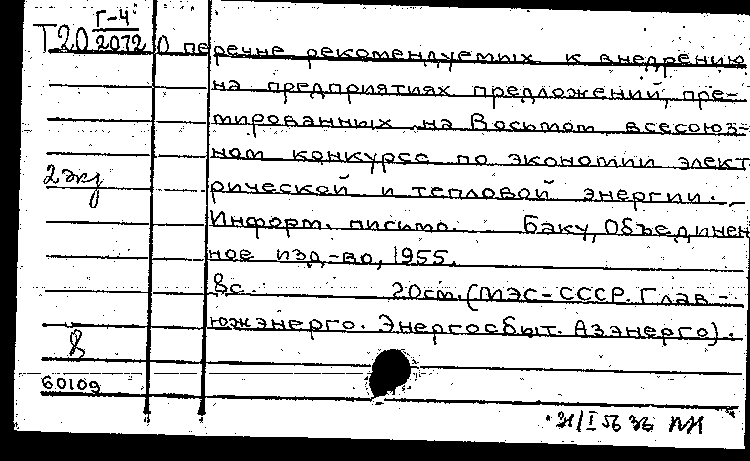 Г-4
Т20 2072 О перечне рекомендуемых к внедрению
на предприятиях предложений, пре-
мированных на Восьмом всесоюз-
ном конкурсе по экономии элект
2 экз
рической и тепловой энергии. -
Информ. письмо. Баку, Объединен
ное изд-во, 1955.
8с. 20см. (МЭС-СССР. Глав-
южэнерго. Энергосбыт. Азэнерго).
8
60109